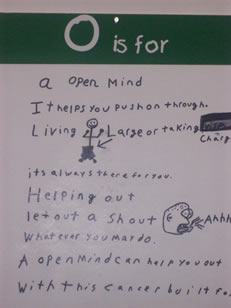 O is for
a open mind
It helps you push on through.
Living Large or taking
Charg
its always there for you.
Helping out
let out a shout Ahhh
Whatever you may do.
A open mind can help you out
With this cancer built fo